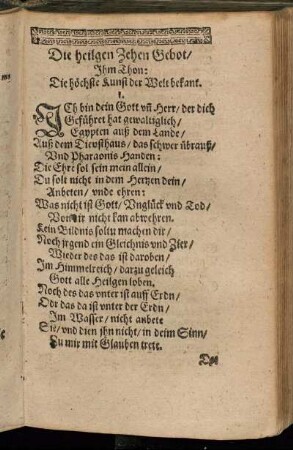 Die heilgen Zehen Gebot/
Ihm Thon:
Die höchste Kunst der Welt bekant.
1.
ICh bin dein Gott vñ Herr/ der dich
Geführet hat gewaltiglich/
Egypten auß dem Lande/
Auß dem Dienſthaus/ das ſchwer übrauß/
Vnd Pharaonis Handen:
Die Ehre ſol ſein mein allein/
Du ſolt nicht in dem Hertzen dein/
Anbeten/ vnde ehren:
Was nicht iſt Gott/ Vnglück vnd Tod/
Von dir nicht kan abwehren.
Kein Bildnis ſoltu machen dir/
Noch jrgend ein Gleichnis vnd Zier/
Wieder des das iſt daroben/
Im Himmelreich/ darzu geleich
Gott alle Heilgen loben.
Noch des das vnter iſt auff Erdn/
Odr das da iſt vnter der Erdn/
Im Waſſer/ nicht anbete
Sie/ vnd dien jhn nicht/ in deim Sinn/
Zu mir mit Glauben trett.